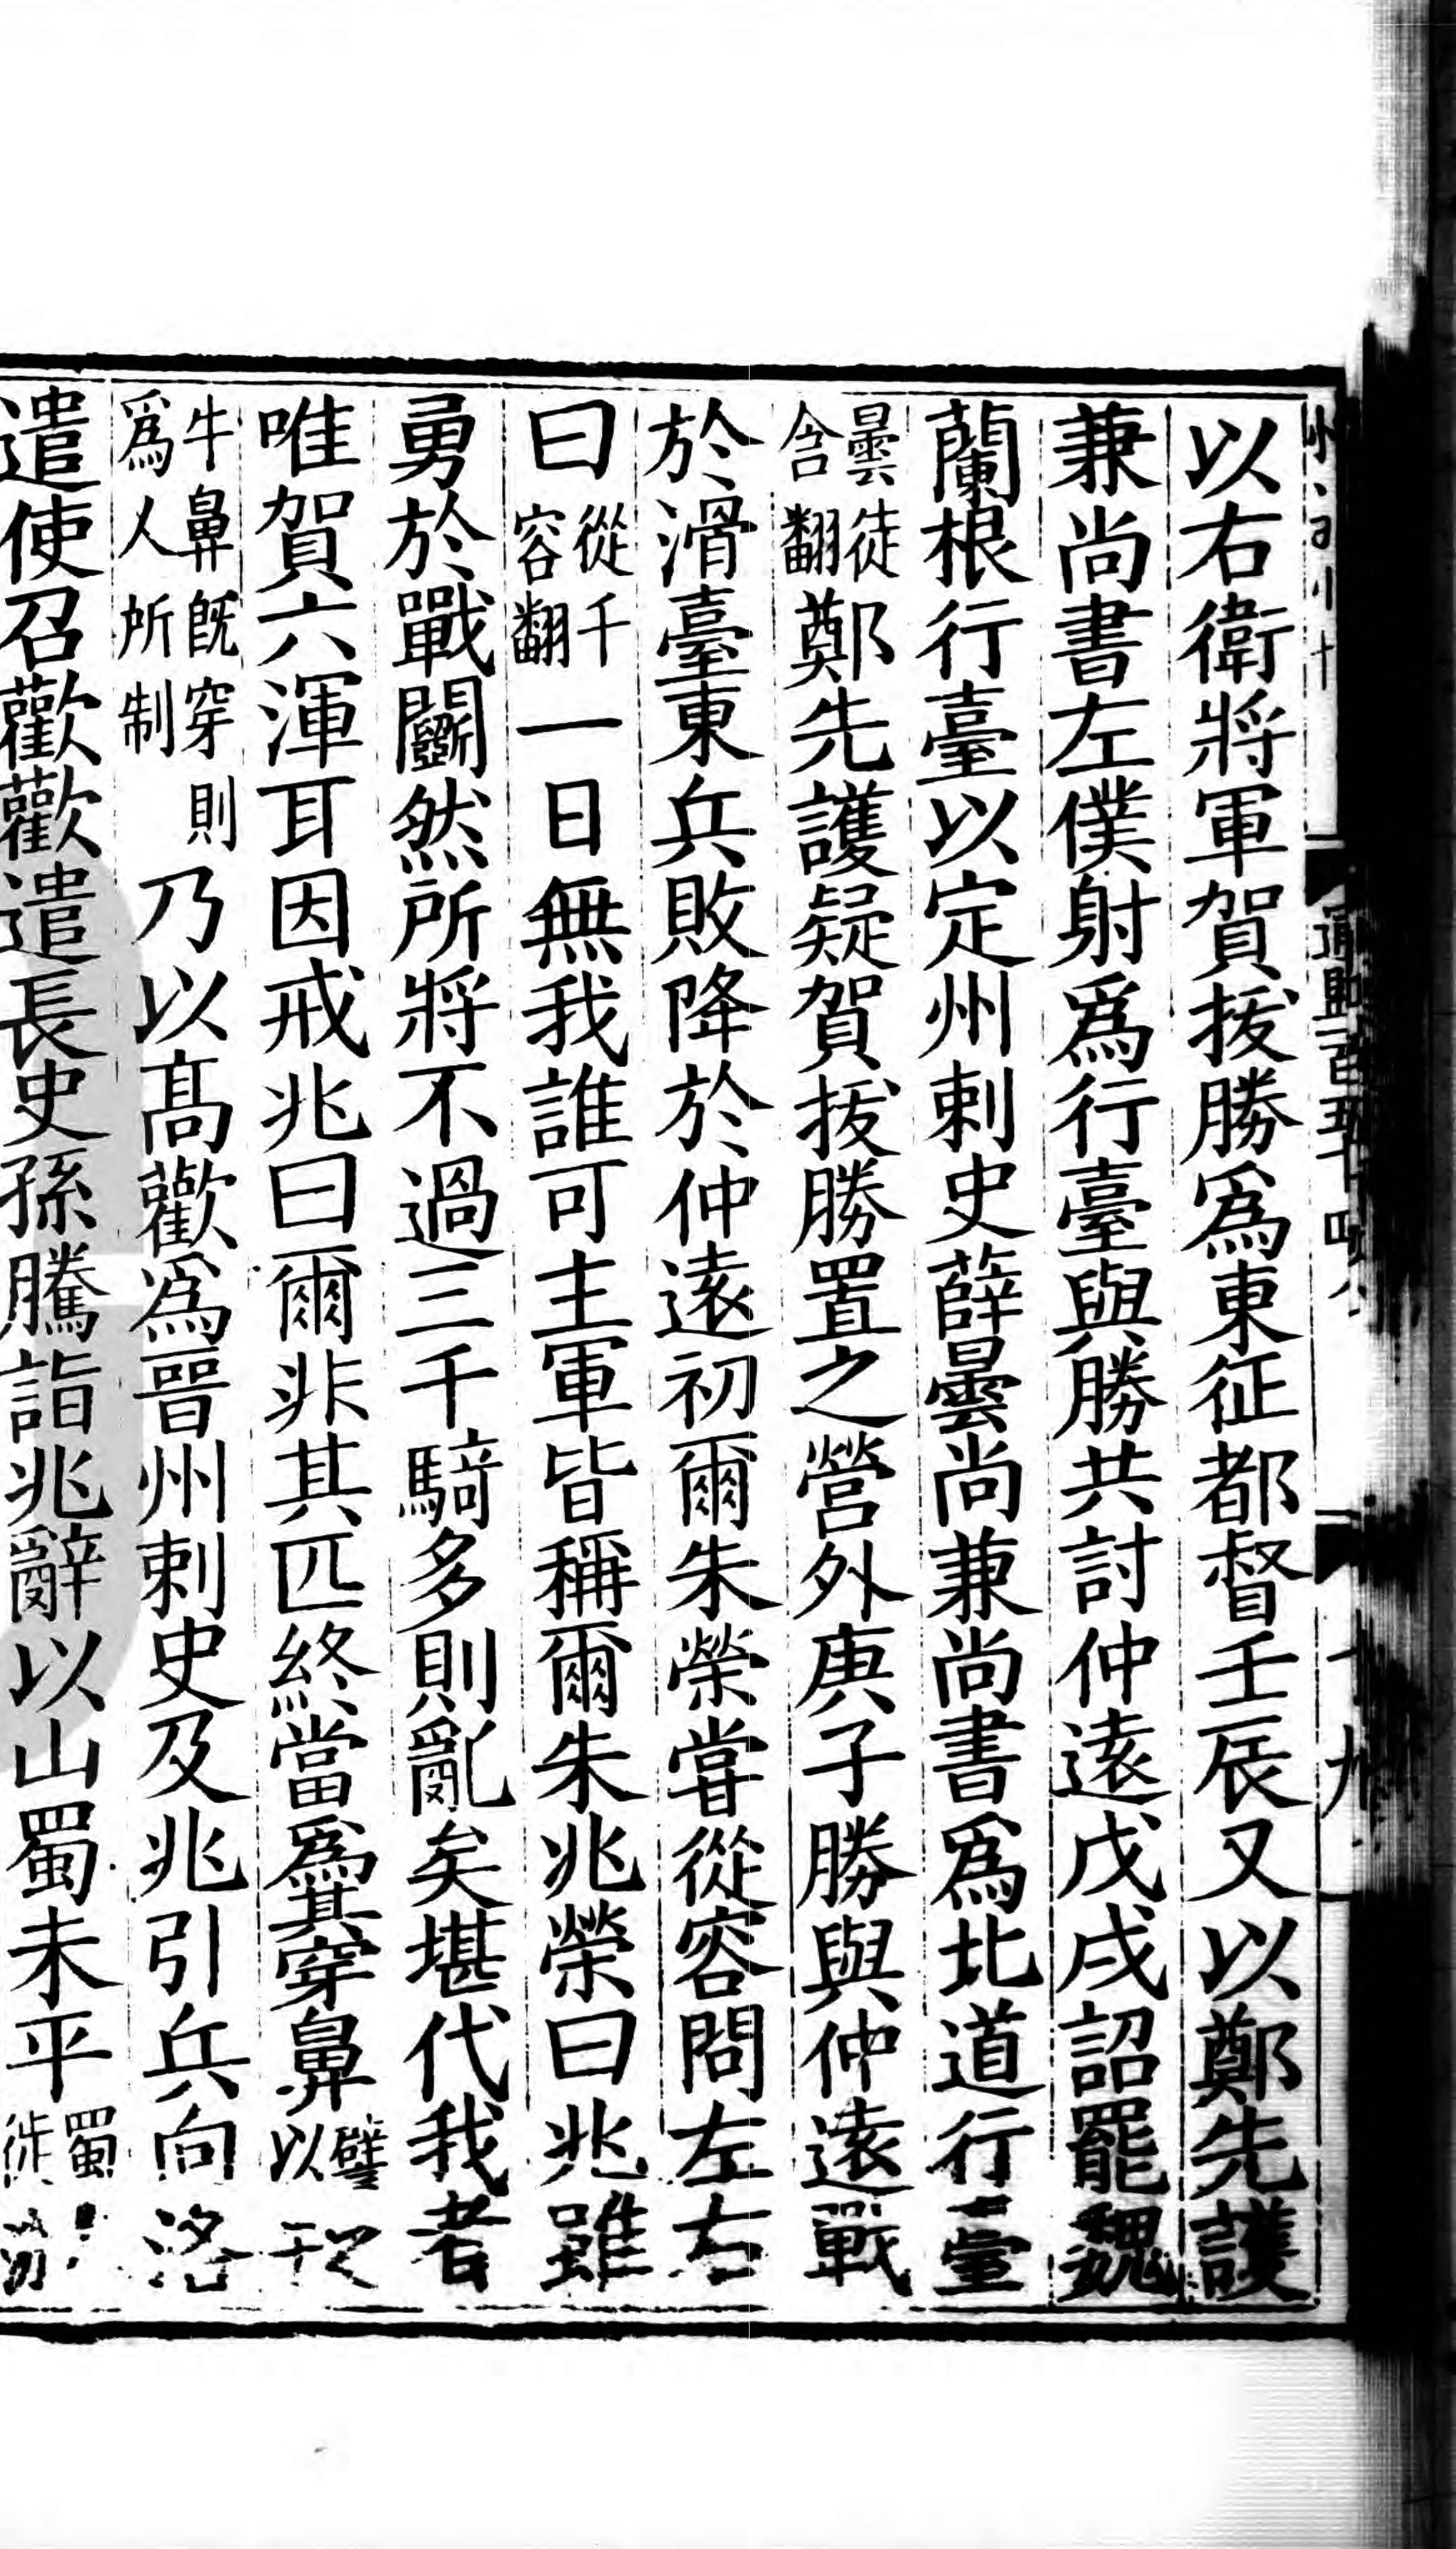 以右衛將軍賀拔勝爲東征都督壬辰又以鄭先護
兼尚書左僕射爲行臺與勝共討仲遠戊戌詔罷魏
蘭根行臺以定州刺史薛曇尚兼尚書爲北道行臺
曇徒
含翻
鄭先護疑賀拔勝置之營外庚子勝與仲遠戰
於滑臺東兵敗降於仲遠初爾朱榮嘗從容問左右
曰
從千
容翻
一日無我誰可主軍皆稱爾朱兆榮曰兆雖
勇於戰鬬然所將不過三千騎多則亂矣堪代我者
唯賀六渾耳因戒兆曰爾非其匹終當爲其穿鼻
譬
以
牛鼻既穿則
爲人所制
乃以高歡爲晉州刺史及兆引兵向洛
遣使召歡歡遣長史孫騰詣兆辭以山蜀未平
蜀
徙